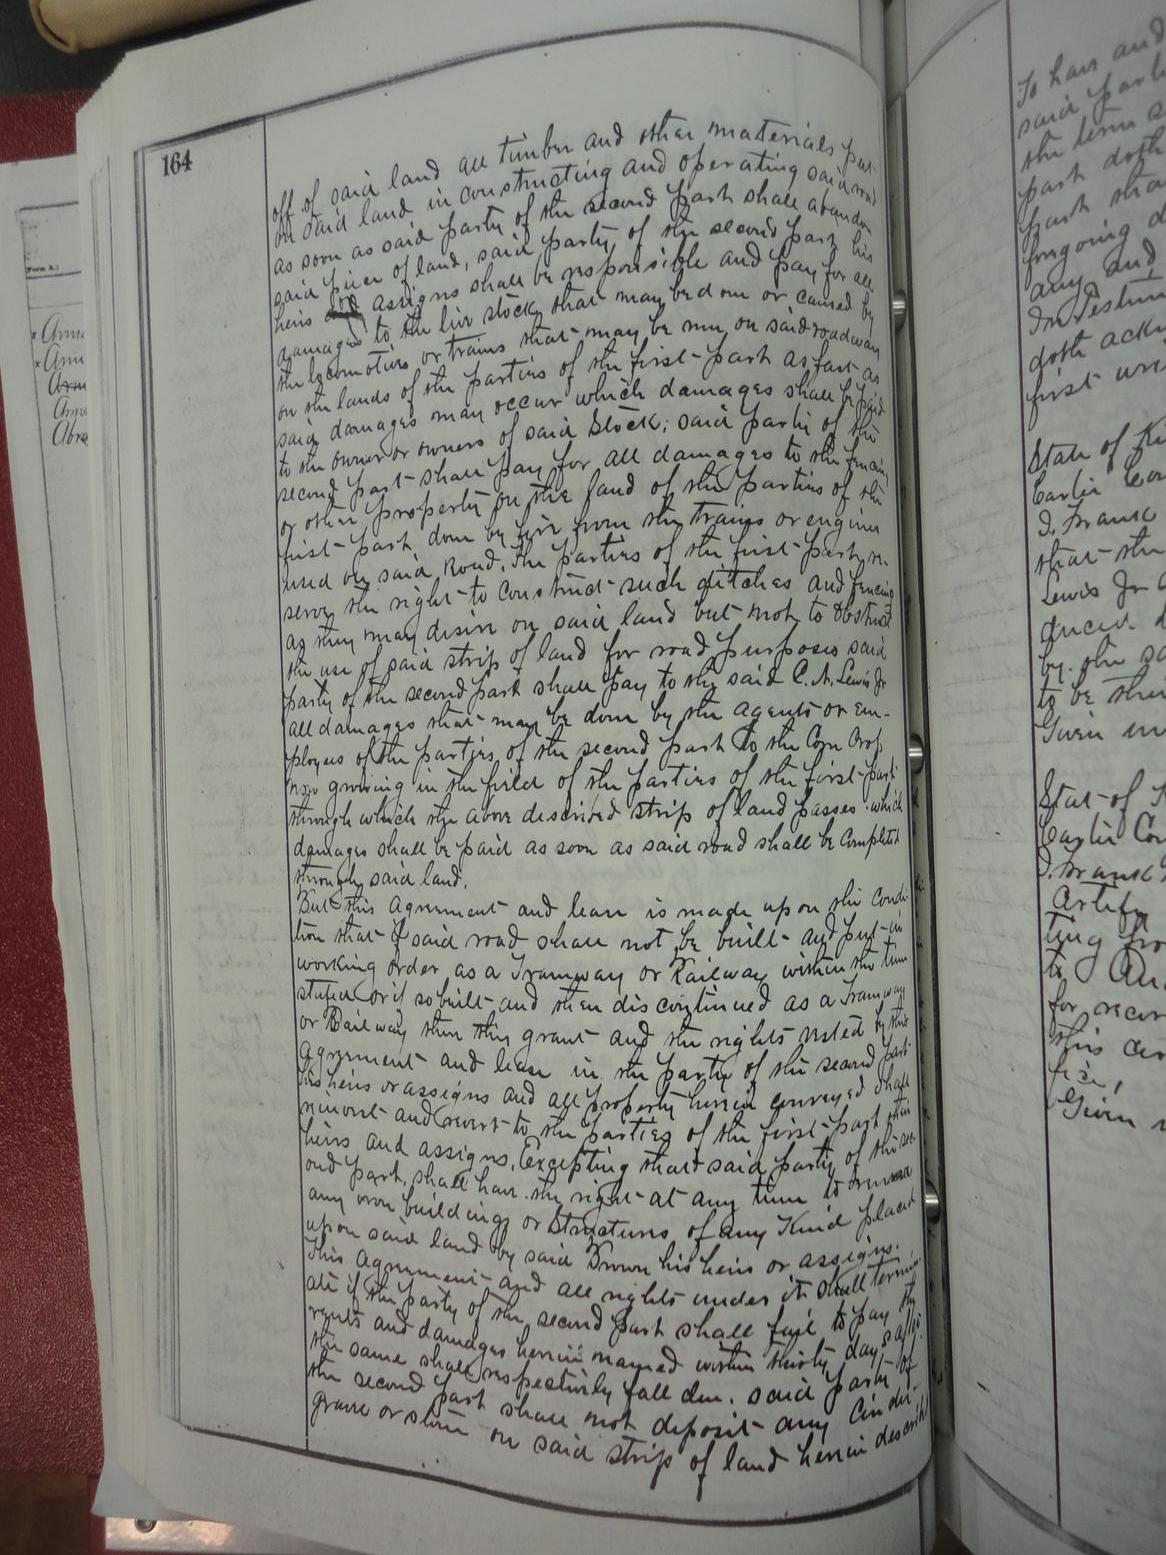 164
off of said land all timber and other materials put
on said land in constructing and operating said road
as soon as said party of the second part shall abandon
said piece of land, said party, of the second part his
heirs and assigns shall be responsible and pay for all
damages to the live stock that may be done or caused by
the locomotives or trains that may be run on said roadway
on the lands of the parties of the first part as fast as
said damages may occur which damages shall be paid
to the owner or owners of said Stock; said party of the
second part shall pay for all damages to the fencing
or other property on the land of the parties of the
first part, done by fire from the trains or engines
used on said Road. The parties of the first part re-
serve the right to construct such ditches and fencing
as they may desire on said land but not to Obstruct
the use of said strip of land for road purposes said
party of the second part shall pay to the said C. A. Lewis Jr
all damages that may be done by the agents or em-
ployees of the parties of the second part to the Corn Crop
now growing in the field of the parties of the first part
through which the above described strip of land passes which
damages shall be paid as soon as said road shall be Completed
through said land.
But this Agreement and lease is made upon the Condi-
tion that if said road shall not be built and put in
working order, as a Tramway or Railway within the time
stated or if so built and then discontinued as a Tramway
or Railway then this grant and the rights vested by this
Agreement and lease in the party of the second part
his heirs or assigns and all property herein conveyed shall
reinvest and revert to the parties of the first part their
heirs and assigns, Excepting that said party of the sec-
ond part, shall have the right at any time to remove
any iron buildings or Structures of any Kind placed
upon said land by said Brown his heirs or assigns.
This Agreement and all rights under it shall termin-
ate if the party of the second part shall fail to pay the
rents and damages herein named within thirty days after
the same shall respectively fall due. said party of
the second part shall not deposit any Cinder
gravel or stone on said strip of land herein described
Form A.
To have and
said part
the term
part doth
part sha
forgoing
any and
In Testim
doth ackn
first wri
State of K
Carlie Co
I. Frank
that the
Lewis Jr
duced
by the sa
to be thei
Given un
Stat of
Carlie Co
I. Frank
Certify
ting fro
to
for recor
this cer
fice,
Given